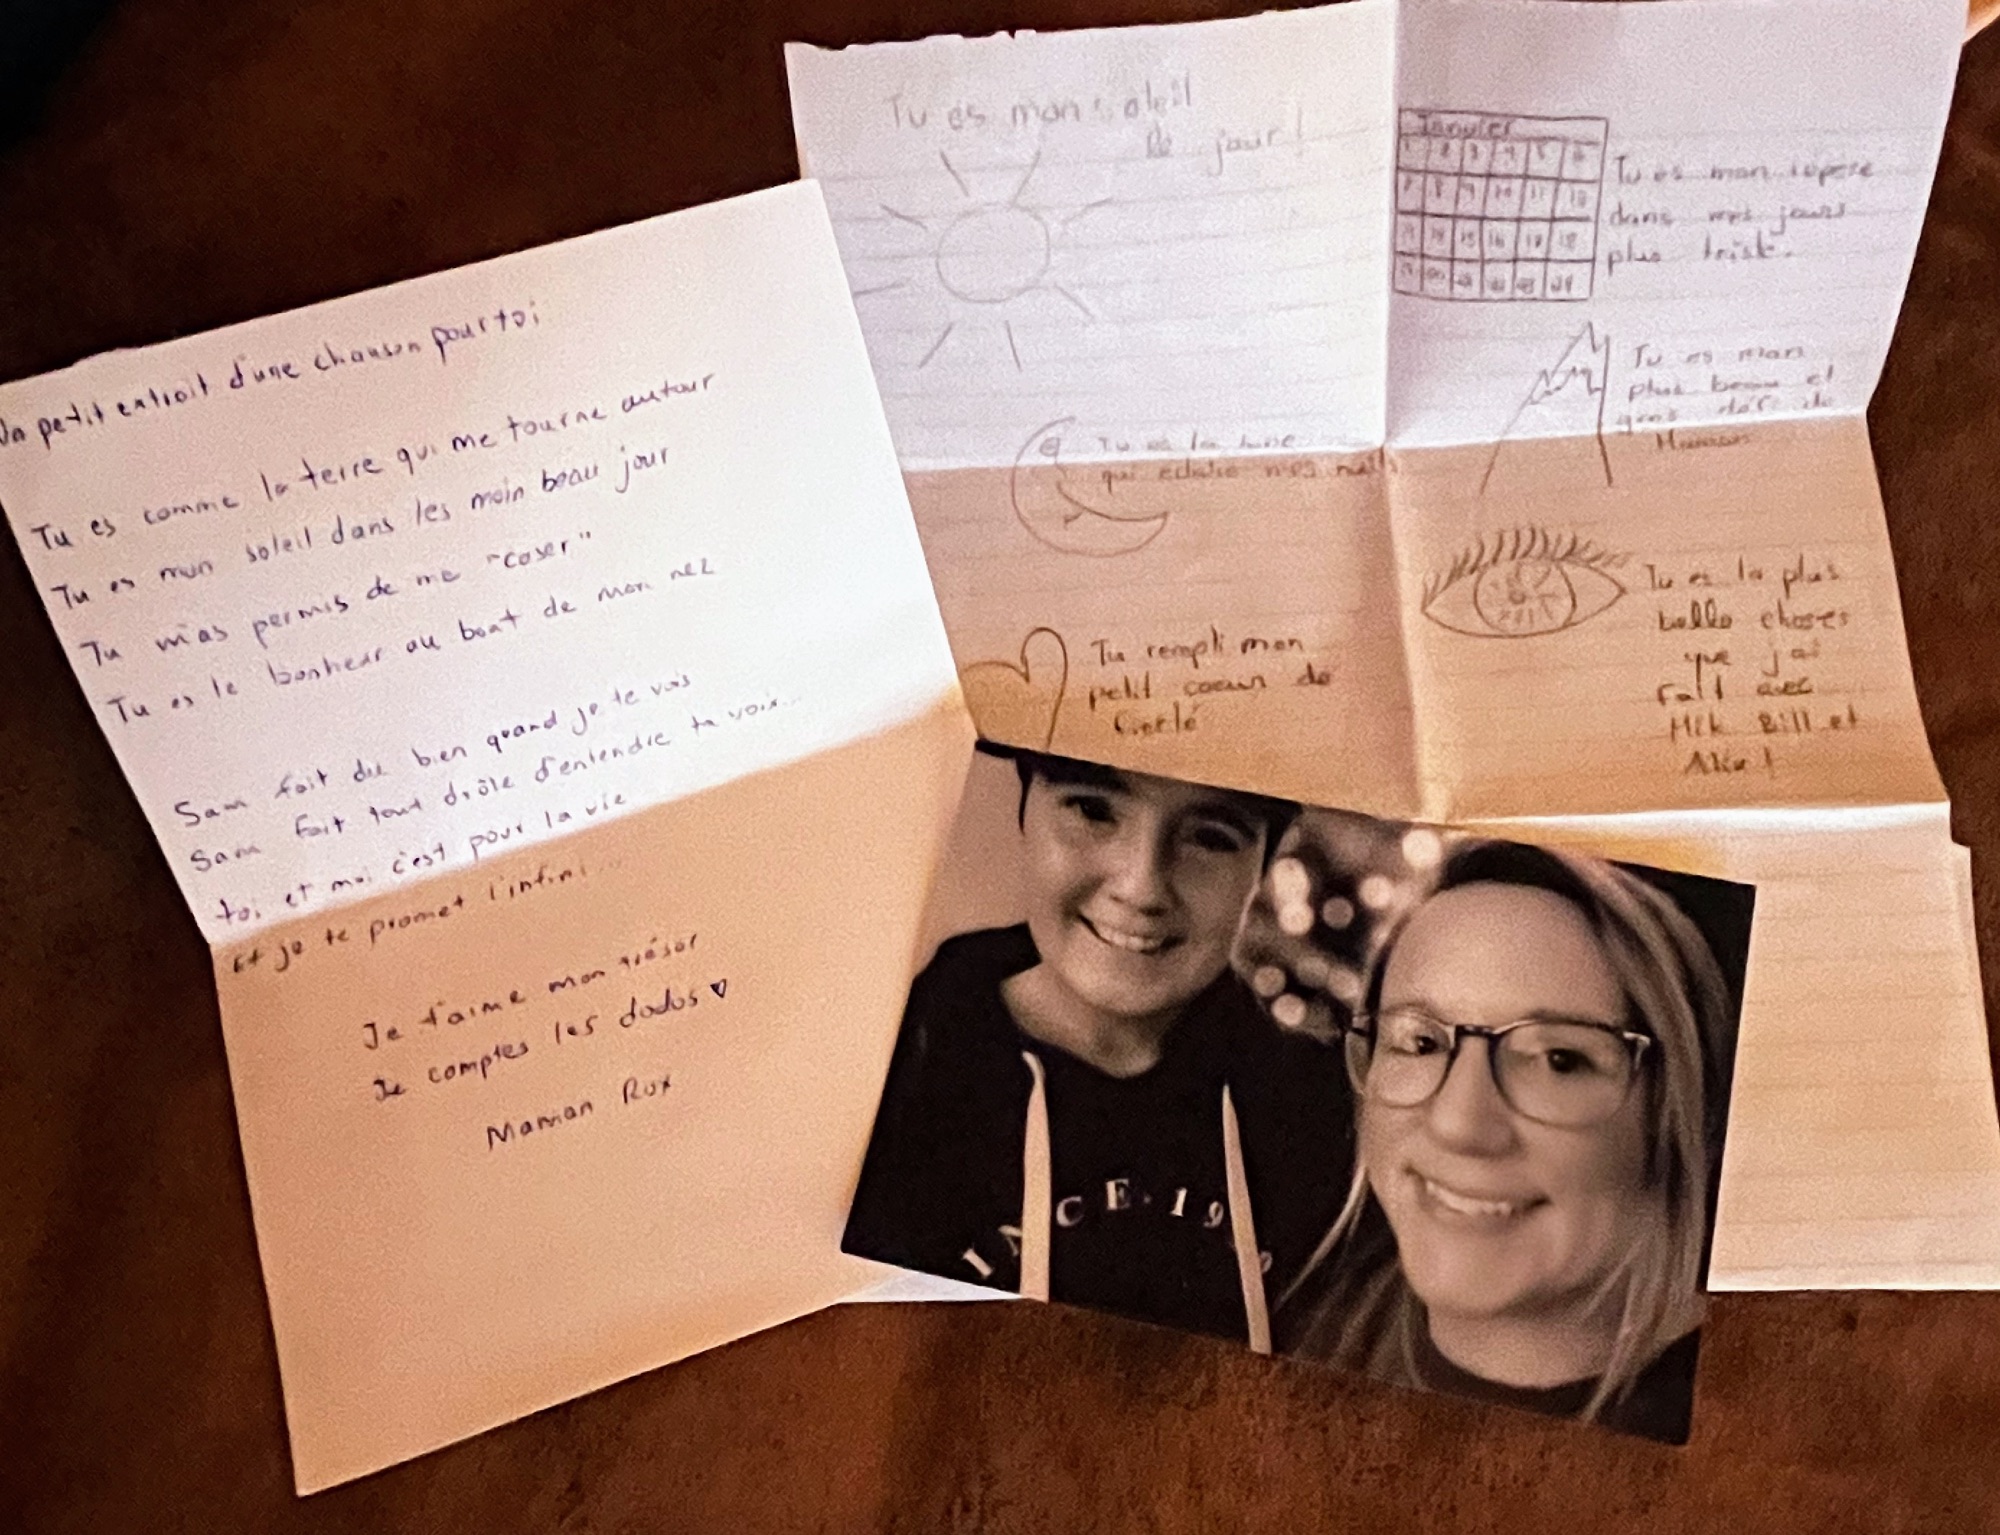 petit extrait d'une chanson pour toi
Tu es comme la terre qui me tourne autour
Tu es mon soleil dans les moin beau jour
Tu m'as permis de me "caser"
Tu es le bonheur au bout de mon nez
Sam fait du bien quand je te vois
Sam fait tout drôle d'entendre ta voix...
toi et moi c'est pour la vie
Et je te promet l'infini...
Je t'aime mon trésor
Je comptes les dodos
Maman Rox
Tu es mon soleil
De jour!
Tu es la lune
qui eclaire mes nuits
Tu rempli mon
petit coeur de
Janvier
1 2 3 4 5 6
7 8 9 10 11 12
13 14 15 16 17 18
19 20 21 22 23 24
Tu es mon repère
dans mes jours
plus trist.
Tu es mon
plus beau et
gros de
Maman
Tu es la plus
belle choses
que j'ai
fait avec
Mik Bill et
I N C E . 1 9